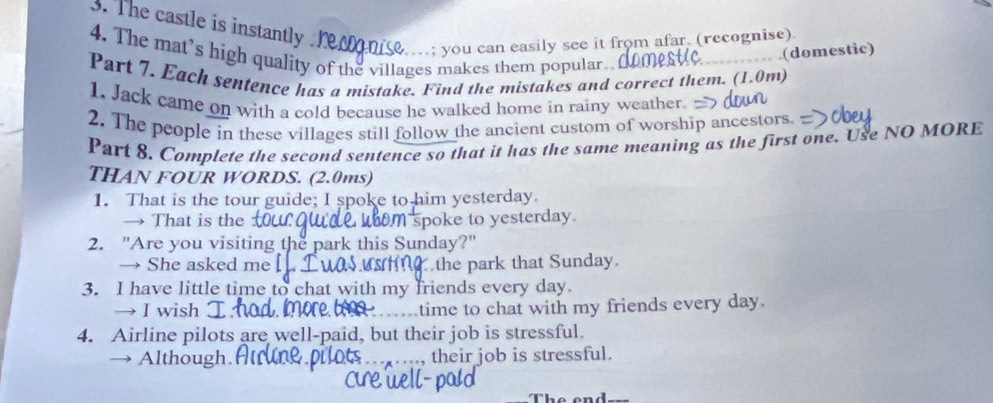 3. The castle is instantly recognise....; you can easily see it from afar. (recognise).
4. The mat's high quality of the villages makes them popular..domestic............(domestic)
Part 7. Each sentence has a mistake. Find the mistakes and correct them. (1.0m)
1. Jack came on with a cold because he walked home in rainy weather. => down
2. The people in these villages still follow the ancient custom of worship ancestors. => obey
Part 8. Complete the second sentence so that it has the same meaning as the first one. Use NO MORE
THAN FOUR WORDS. (2.0ms)
1. That is the tour guide; I spoke to him yesterday.
→ That is the tour guide whom I spoke to yesterday.
2. "Are you visiting the park this Sunday?"
→ She asked me if I was visiting the park that Sunday.
3. I have little time to chat with my friends every day.
→ I wish I had more ........time to chat with my friends every day.
4. Airline pilots are well-paid, but their job is stressful.
→ Although. Airline pilots ........, their job is stressful.
are well-paid
---The end---